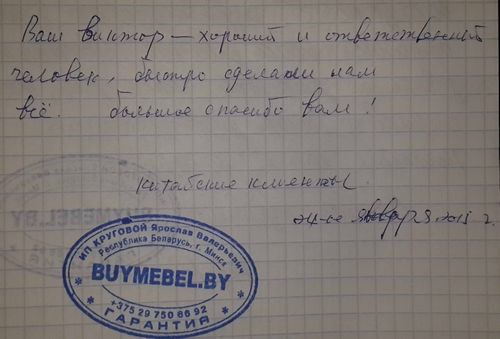 Ваш виктор – хороший и ответственний
человек, быстро сделали нам
всё. большое спасибо вам!
китайские клиенты
24-ое января 2015 г.
ИП КРУГОВОЙ Ярослав Валерьевич
Республика Беларусь, г. Минск
BUYMEBEL.BY
+375 29 750 66 92
ГАРАНТИЯ